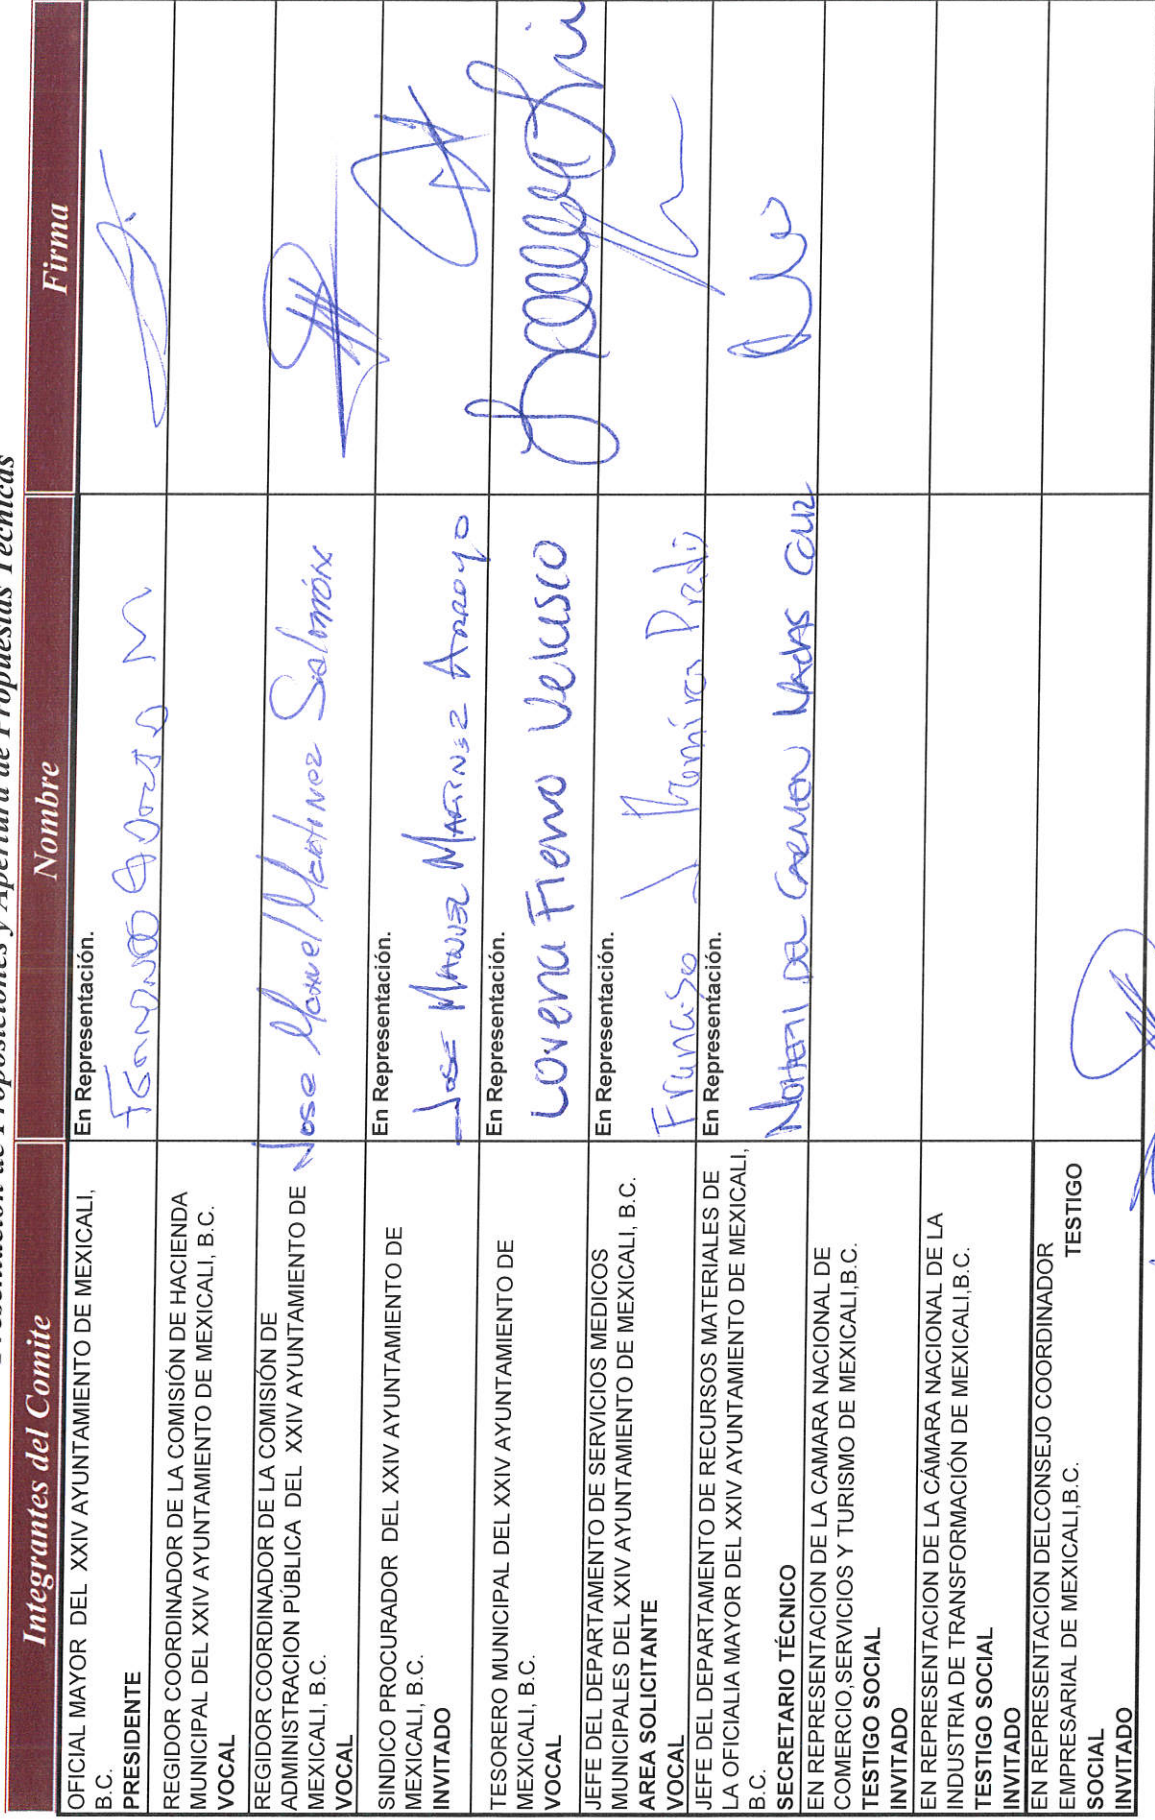 Presentación de Proposiciones y Apertura de Propuestas Técnicas
Integrantes del Comite
Nombre
Firma
OFICIAL MAYOR DEL XXIV AYUNTAMIENTO DE MEXICALI,
B.C.
PRESIDENTE
En Representación.
REGIDOR COORDINADOR DE LA COMISIÓN DE HACIENDA
MUNICIPAL DEL XXIV AYUNTAMIENTO DE MEXICALI, B.C.
VOCAL
REGIDOR COORDINADOR DE LA COMISIÓN DE
ADMINISTRACION PÚBLICA DEL XXIV AYUNTAMIENTO DE
MEXICALI, B.C.
VOCAL
Jose Manuel Martinez Salomón
SINDICO PROCURADOR DEL XXIV AYUNTAMIENTO DE
MEXICALI, B.C.
INVITADO
En Representación.
Jose Manuel Martinez Arroyo
TESORERO MUNICIPAL DEL XXIV AYUNTAMIENTO DE
MEXICALI, B.C.
VOCAL
En Representación.
Lorena Fierro Velasco
JEFE DEL DEPARTAMENTO DE SERVICIOS MEDICOS
MUNICIPALES DEL XXIV AYUNTAMIENTO DE MEXICALI, B.C.
AREA SOLICITANTE
VOCAL
En Representación.
Francisco J Ramirez Prado
JEFE DEL DEPARTAMENTO DE RECURSOS MATERIALES DE
LA OFICIALIA MAYOR DEL XXIV AYUNTAMIENTO DE MEXICALI,
B.C.
SECRETARIO TÉCNICO
En Representación.
DEL CARMEN CRUZ
EN REPRESENTACION DE LA CAMARA NACIONAL DE
COMERCIO,SERVICIOS Y TURISMO DE MEXICALI,B.C.
TESTIGO SOCIAL
INVITADO
EN REPRESENTACION DE LA CÁMARA NACIONAL DE LA
INDUSTRIA DE TRANSFORMACIÓN DE MEXICALI,B.C.
TESTIGO SOCIAL
INVITADO
EN REPRESENTACION DELCONSEJO COORDINADOR
EMPRESARIAL DE MEXICALI,B.C. TESTIGO
SOCIAL
INVITADO